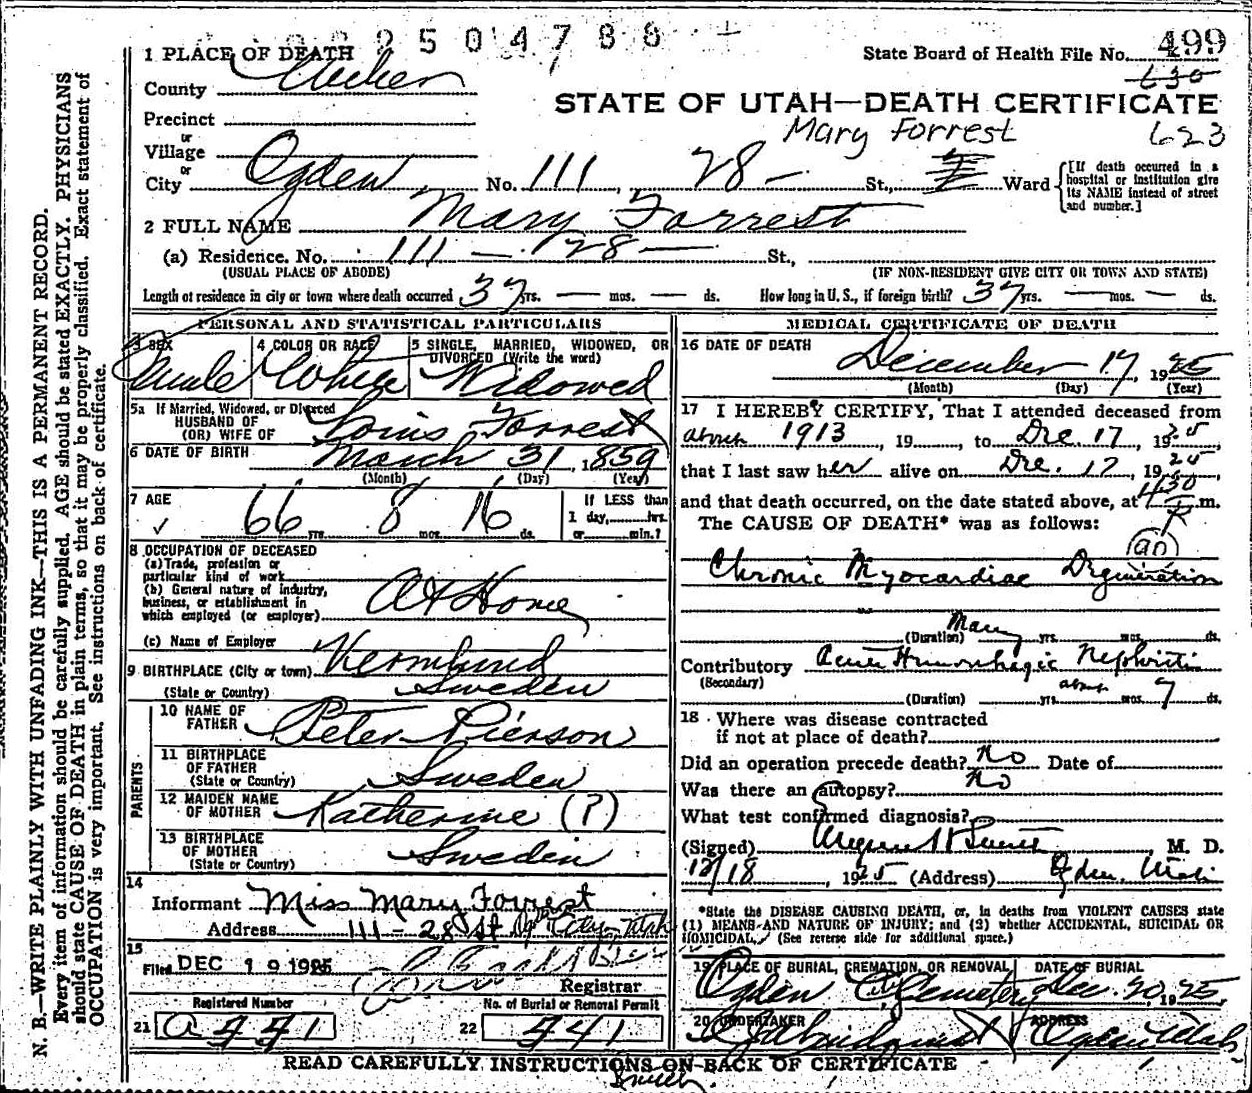 2504788
1 PLACE OF DEATH
State Board of Health File No. 499
630
County Weber
STATE OF UTAH—DEATH CERTIFICATE
Precinct
Mary Forrest 623
or
Village
or
City Ogden No. 111, 28 - St., Ward
[If death occurred in a hospital or institution give its NAME instead of street and number.]
2 FULL NAME Mary Forrest
(a) Residence. No. 111 — 28 — St.,
(USUAL PLACE OF ABODE) (IF NON-RESIDENT GIVE CITY OR TOWN AND STATE)
Length of residence in city or town where death occurred 37 yrs. — mos. — ds. How long in U. S., if foreign birth? 37 yrs. — mos. — ds.
PERSONAL AND STATISTICAL PARTICULARS
3 SEX
4 COLOR OR RACE White
5 SINGLE, MARRIED, WIDOWED, OR DIVORCED (Write the word) Widowed
5a If Married, Widowed, or Divorced
HUSBAND OF
(OR) WIFE OF Louis Forrest
6 DATE OF BIRTH March 31, 1859
(Month) (Day) (Year)
7 AGE 66 yrs. 8 mos. 16 ds.
If LESS than
1 day, hrs.
or min.?
8 OCCUPATION OF DECEASED
(a) Trade, profession or
particular kind of work
(b) General nature of industry,
business, or establishment in
which employed (or employer) At Home
(c) Name of Employer
9 BIRTHPLACE (City or town) Vermlund
(State or Country) Sweden
PARENTS
10 NAME OF
FATHER Peter Pierson
11 BIRTHPLACE
OF FATHER
(State or Country) Sweden
12 MAIDEN NAME
OF MOTHER Katherine (?)
13 BIRTHPLACE
OF MOTHER
(State or Country) Sweden
14
Informant Miss Mary Forrest
Address 111 - 28 St Utah
15
Filed DEC 19 1925
Registrar
Registered Number
21 a 441
No. of Burial or Removal Permit
22 441
MEDICAL CERTIFICATE OF DEATH
16 DATE OF DEATH
December 17, 1925
(Month) (Day) (Year)
17 I HEREBY CERTIFY, That I attended deceased from
about 1913, 19, to Dec 17, 1925,
that I last saw her alive on Dec. 17, 1925,
and that death occurred, on the date stated above, at 430 P m.
The CAUSE OF DEATH* was as follows:
90
Chronic Myocardiac Degeneration
(Duration) Many yrs. mos. ds.
Contributory Acute Hemorrhagic Nephritis
(Secondary)
(Duration) yrs. about mos. 7 ds.
18 Where was disease contracted
if not at place of death?
Did an operation precede death? No Date of
Was there an autopsy? No
What test confirmed diagnosis?
(Signed) M. D.
12/18, 1925 (Address) Ogden, Utah
*State the DISEASE CAUSING DEATH, or, in deaths from VIOLENT CAUSES state
(1) MEANS AND NATURE OF INJURY; and (2) whether ACCIDENTAL, SUICIDAL OR
HOMICIDAL. (See reverse side for additional space.)
19 PLACE OF BURIAL, CREMATION, OR REMOVAL Ogden City Cemetery
DATE OF BURIAL Dec. 20, 1925,
20 UNDERTAKER
ADDRESS Ogden Utah
READ CAREFULLY INSTRUCTIONS ON BACK OF CERTIFICATE
N. B.—WRITE PLAINLY WITH UNFADING INK—THIS IS A PERMANENT RECORD.
Every item of information should be carefully supplied. AGE should be stated EXACTLY. PHYSICIANS
should state CAUSE OF DEATH in plain terms, so that it may be properly classified. Exact statement of
OCCUPATION is very important. See instructions on back of certificate.